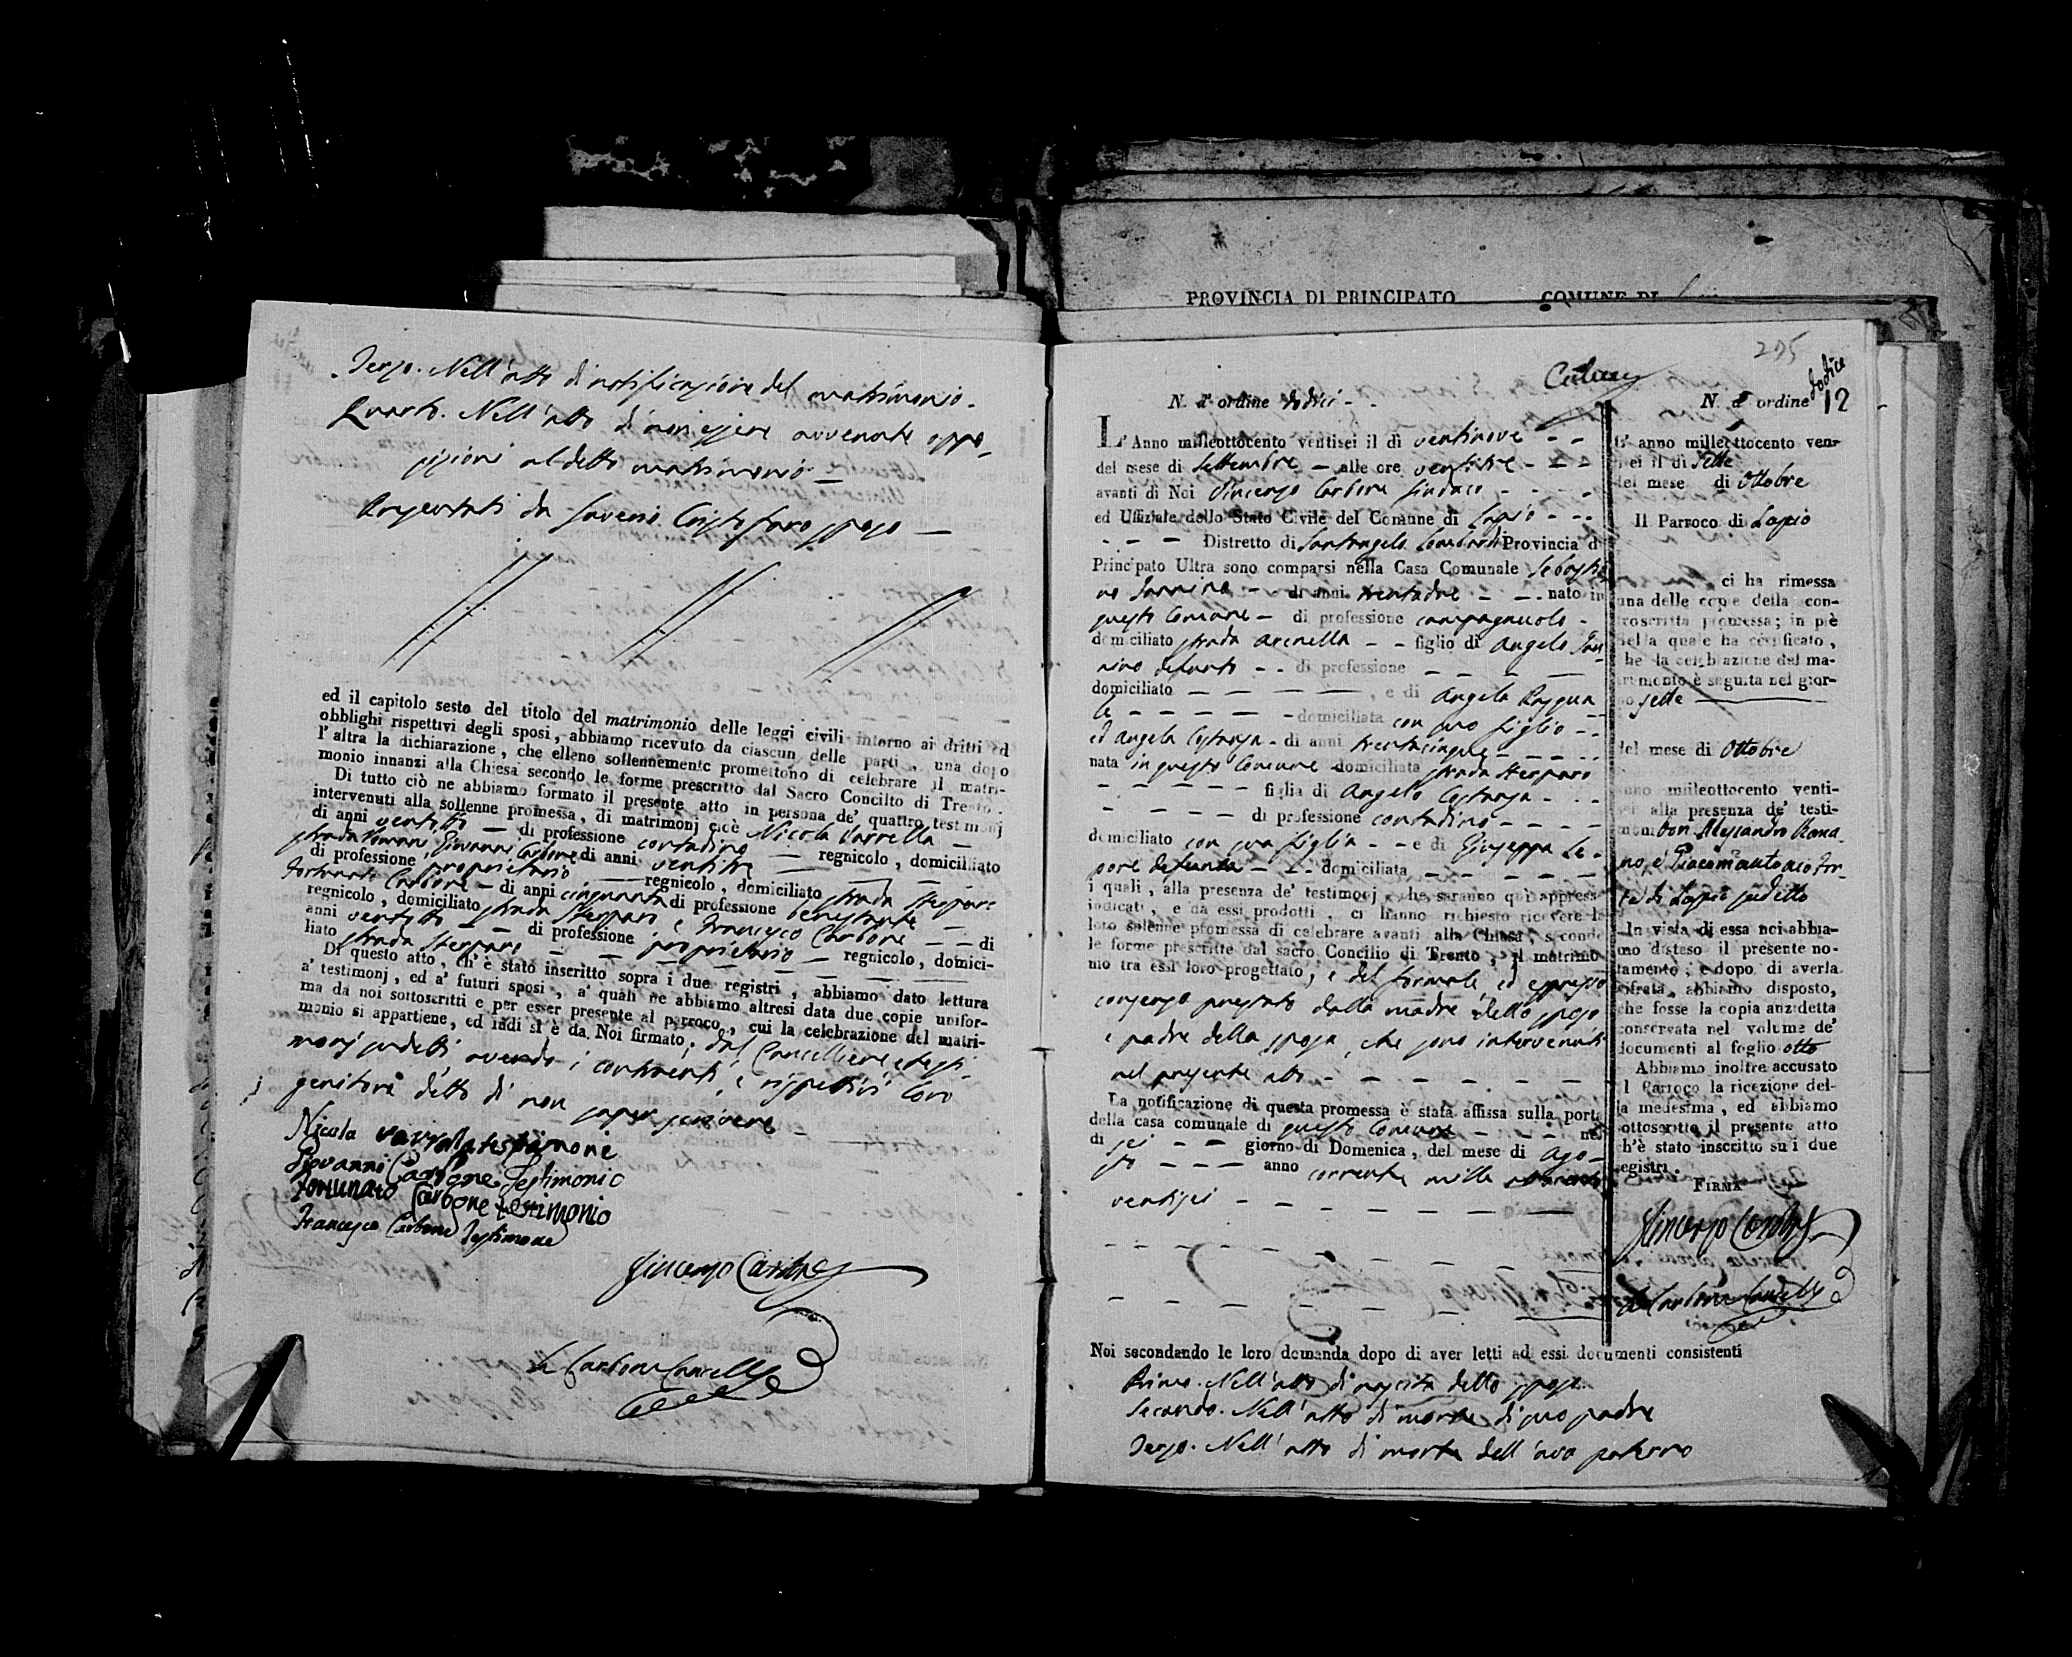 Terzo. Nell'atto di notificazione del matrimonio.
Quarto. Nell'atto di non essere avvenute oppo_
sizioni al detto matrimonio _
Presentati da Saverio Cristofaro sposo _
ed il capitolo sesto del titolo del matrimonio delle leggi civili intorno ai dritti ed
obblighi rispettivi degli sposi, abbiamo ricevuto da ciascun delle parti, una dopo
l'altra la dichiarazione, che elleno sollennemente promettono di celebrare il matri-
monio innanzi alla Chiesa secondo le forme prescritto dal Sacro Concilto di Trento.
Di tutto ciò ne abbiamo formato il presente atto in persona de' quattro testimonj
intervenuti alla sollenne promessa, di matrimonj cioè Nicola Varrella _
di anni ventotto _ di professione contadino _ regnicolo, domiciliato
strada Giovanni Carbone di anni ventitre _
di professione proprietario _ regnicolo, domiciliato strada Sterparo
Fortunato Carbone _ di anni cinquanta di professione benestante _
regnicolo, domiciliato strada Sterparo e Francesco Carbone _ _ di
anni ventotto _ _ di professione proprietario _ regnicolo, domici-
liato strada Sterparo _ _ _ _
Di questo atto, ch'è stato inscritto sopra i due registri, abbiamo dato lettura
a' testimonj, ed a' futuri sposi, a' quali ne abbiamo altresi data due copie unifor-
ma da noi sottoscritti e per esser presente al parroco, cui la celebrazione del matri-
monio si appartiene, ed indi si è da Noi firmato, dal Cancelliere, e testi-
monj sudetti, avendo i contraenti, e rispettivi loro
genitori detto di non saper scrivere _
Nicola varrella testimone
Giovanni Carbone Testimonio
Fortunato Carbone testimonio
Francesco Carbone Testimone
Vincenzo Carbone
Carbone Cancelle
PROVINCIA DI PRINCIPATO COMUNE DI
295
N. d'ordine dodici - -
L'Anno milleottocento ventisei il dì ventinove - -
del mese di Settembre - alle ore ventitre - - -
avanti di Noi Vincenzo Carbone Sindaco - - - -
ed Uffiziale dello Stato Civile del Comune di Lapio - - -
- - - Distretto di Santangelo Lombardi Provincia d
Principato Ultra sono comparsi nella Casa Comunale Sebastia
no Iannino - di anni trentadue - - - nato in
questo Comune - di professione campagnuolo -
domiciliato strada Arenella - - figlio di Angelo Ian-
nino defunto - - di professione - - - -
domiciliato - - - - - , e di Angela
- - - - - domiciliata con suo figlio - -
ed Angela Costanza - di anni trentacinque - - - -
nata in questo Comune domiciliata strada Sterparo
- - - - - figlia di Angelo Costanza - - -
- - - - di professione contadino - - - -
domiciliato con sua figlia - - e di Giuseppa Le-
pore defunta - - - domiciliata - - - - -
i quali, alla presenza de' testimonj che saranno qui appress
indicati, e da essi prodotti, ci hanno richiesto ricevere la
loro solenne promessa di celebrare avanti alla Chiesa, second
le forme prescritte dal sacro Concilio di Trento, il matrimo
nio tra essi loro progettato, e del formale, ed espresso
consenso prestato dalla madre dello sposo
e padre della sposa, che sono intervenuti
nel presente atto - - - - - - -
La notificazione di questa promessa è stata affissa sulla porta
della casa comunale di questo Comune - - - - nel
di sei - - giorno di Domenica, del mese di Ago-
sto - - - anno corrente mille ottocento
ventisei - - - - - - -
Noi secondando le loro domanda dopo di aver letti ad essi documenti consistenti
Primo. Nell'atto di nascita dello sposo.
Secondo. Nell'atto di morte di suo padre
Terzo. Nell'atto di morte dell'avo paterno
N. d'ordine dodici
12
L' anno milleottocento ven-
sei il dì sette
del mese di Ottobre
Il Parroco di Lapio
ci ha rimessa
una delle copie della con-
troscritta promessa; in piè
della quale ha certificato,
che la celebrazione del ma-
trimonio è seguita nel gior-
no sette
del mese di Ottobre
anno milleottocento venti-
sei alla presenza de' testi-
monj Don Alessandro Roma
no, e Giacomantonio For-
te di Lapio sudetto
In vista di essa noi abbia-
mo disteso il presente no-
tamento, e dopo di averla
cifrata, abbiamo disposto,
che fosse la copia anzidetta
conservata nel volume de'
documenti al foglio otto
Abbiamo inoltre accusato
al Parroco la ricezione del-
la medesima, ed abbiamo
sottoscritto il presente atto
ch'è stato inscritto su i due
registri.
FIRMA
Vincenzo Carbone
Carbone Cancelle